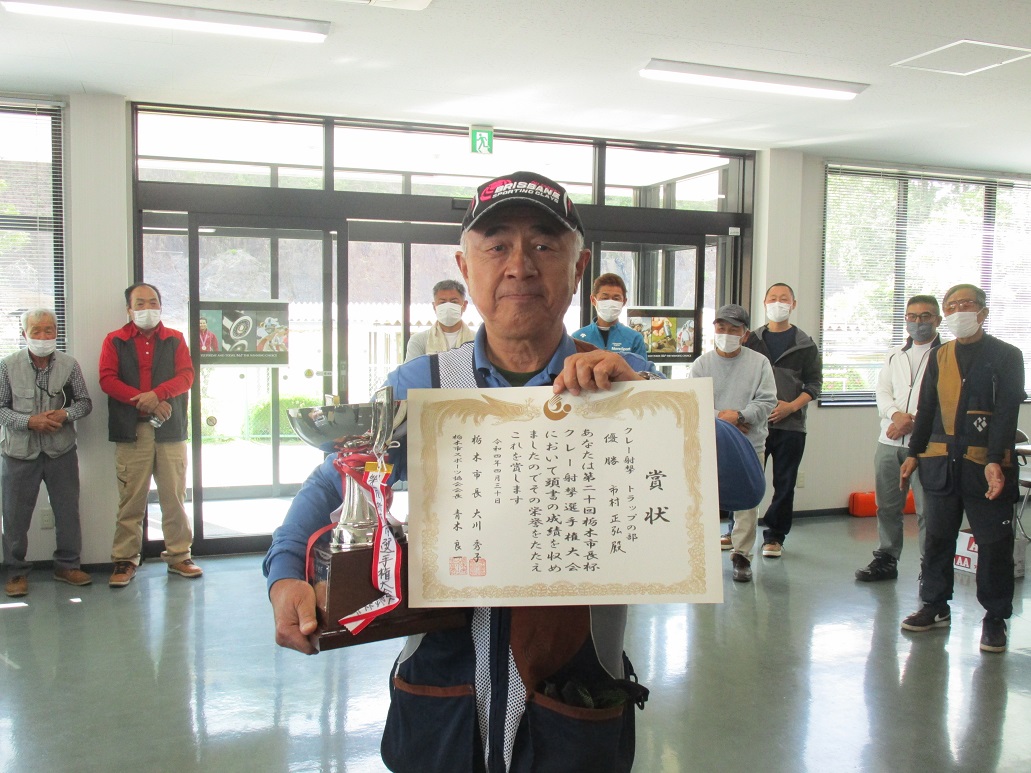 BRISBANE
SPORTING CLAYS
賞状
クレー射撃 トラップの部
優勝 市村 正弘 殿
あなたは第二十回栃木市長杯
クレー射撃選手権大会
において頭書の成績を収め
ましたのでその栄誉をたたえ
これを賞します
令和四年四月三十日
栃木市長 大川 秀子
栃木市スポーツ協会会長 青木 良一
選手権大